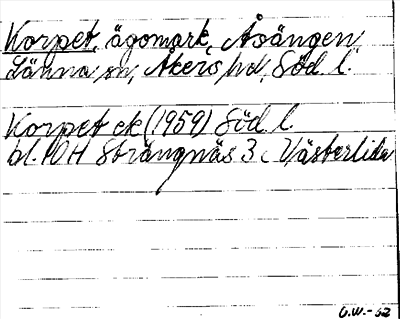 Korpet, ägomark, Åsängen,
Länna sn, Åkers hd, Söd. l.
Korpet ek (1959) Söd. l.
bl. 10H Strängnäs 3 c Västerlida
G.W.-62